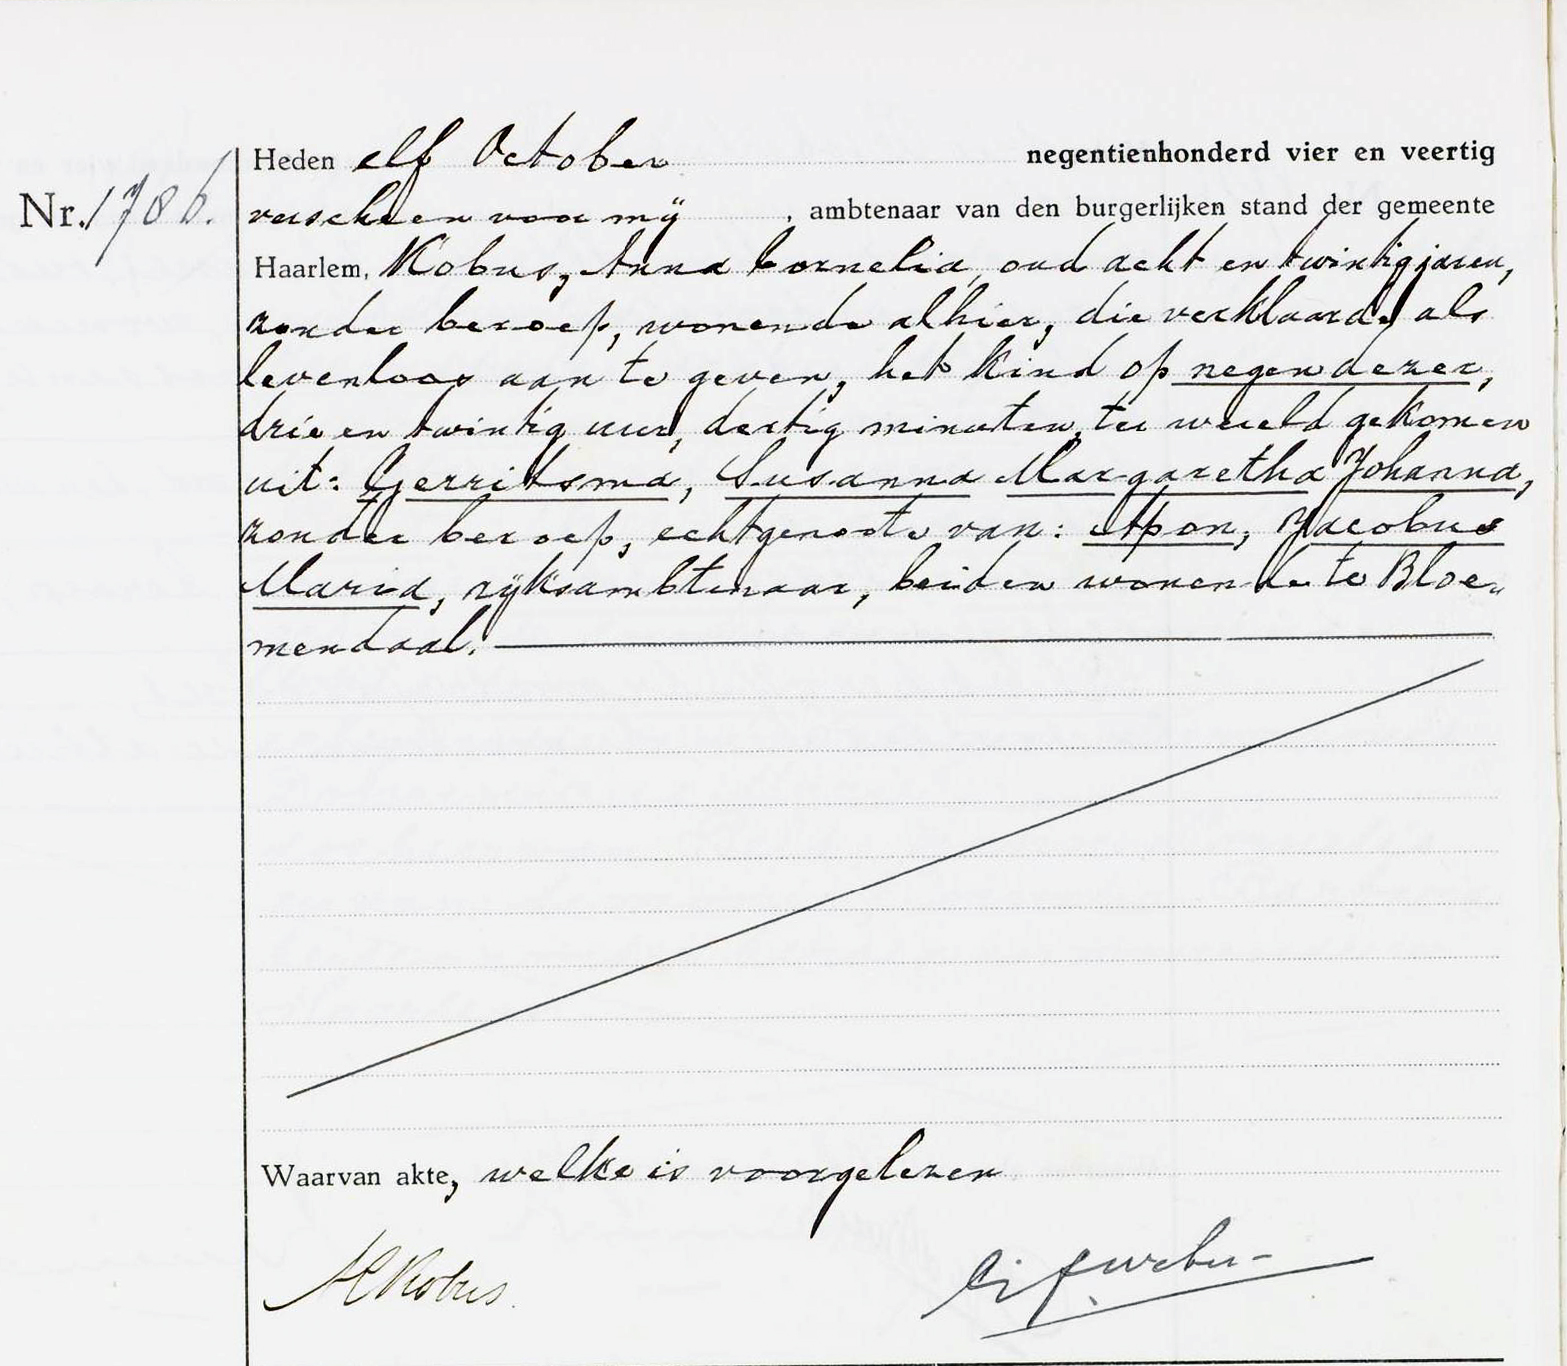 Nr. 1786.
Heden elf October negentienhonderd vier en veertig
verscheen voor mij , ambtenaar van den burgerlijken stand der gemeente
Haarlem, Kobus, Anna Cornelia, oud acht en twintig jaren,
zonder beroep, wonende alhier, die verklaarde als
levenloos aan te geven, het kind op negen dezer,
drie en twintig uur, dertig minuten, ter wereld gekomen
uit: Gerritsma, Susanna Margaretha Johanna,
zonder beroep, echtgenoote van: Apon, Jacobus
Maria, rijksambtenaar, beiden wonende te Bloe„
mendaal.
Waarvan akte, welke is voorgelezen
AC Kobus.